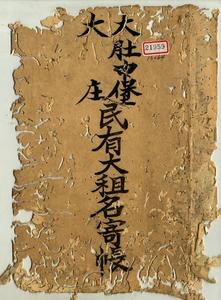 大肚中堡
大庄
民有大租名寄帳
21959